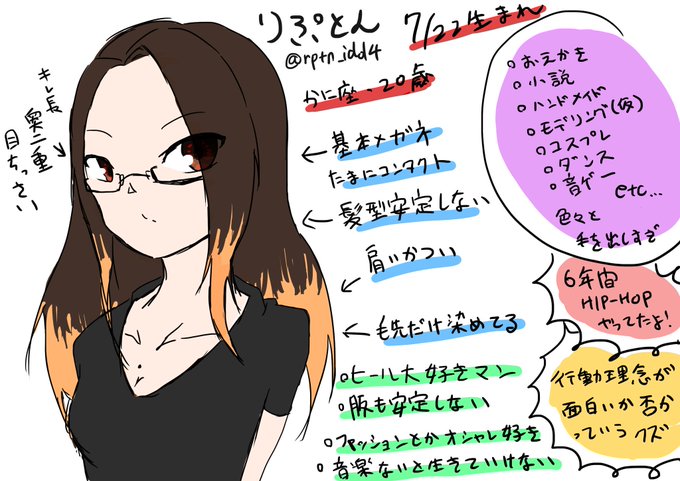 りぷとん 7/22生まれ
@rptn_idd4
かに座・20歳
キレ長
奥二重
目ちっさい
基本メガネ
たまにコンタクト
髪型安定しない
肩いかつい
毛先だけ染めてる
ヒール大好きマン
服も安定しない
ファッションとかオシャレ好き
音楽ないと生きていけない
おえかき
小説
ハンドメイド
モデリング(仮)
コスプレ
ダンス
音ゲー
etc...
色々と
手を出しすぎ
6年間
HIP-HOP
やってたよ!
行動理念が
面白いか否か
っていうクズ